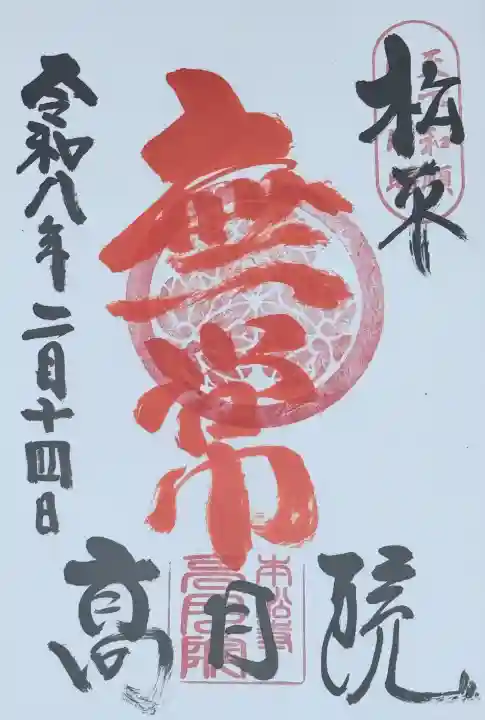 松平
無常
令和八年二月十四日
高月院